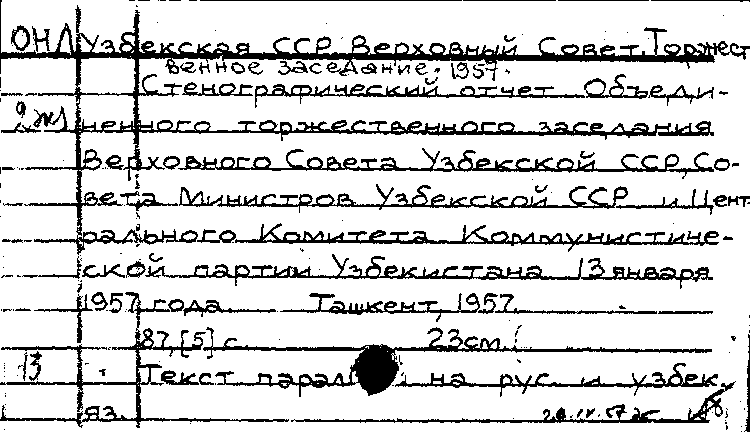 ОНЛ Узбекская ССР. Верховный Совет. Торжест
венное заседание. 1957.
Стенографический отчет Объеди-
ненного торжественного заседания
Верховного Совета Узбекской ССР, Со-
вета Министров Узбекской ССР и Цент
рального Комитета Коммунистиче-
ской партии Узбекистана 13 января
1957 года. Ташкент, 1957.
87, [5] с. 23см.
13 Текст парал на рус. и узбек.
яз.